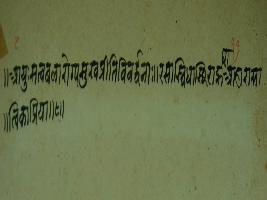 ॥आयुःसत्वबलारोग्यसुखप्रीतिविवर्द्धनाः॥रस्याःस्निग्धाःस्थिराहृद्याआहाराःसा
॥त्विकाप्रियाः॥८॥